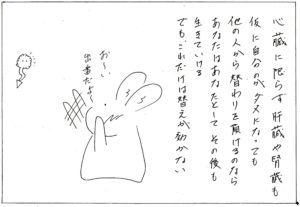 心臓に限らず肝臓や腎臓も
仮に自分のがダメになっても
他の人から替わりを頂けるのなら
あなたはあなたとして その後も
生きていける
でもこれだけは替えが効かない
おーい
出番だよー